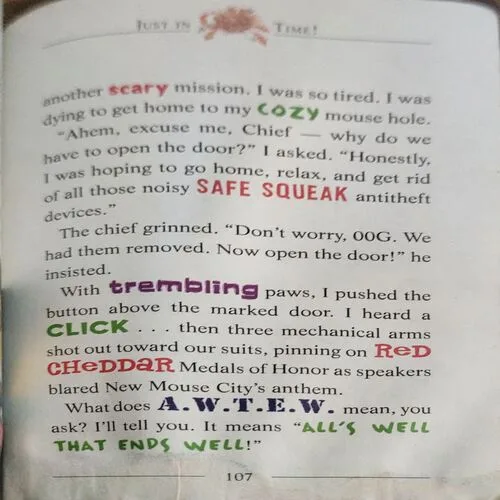 JUST IN TIME!
another scary mission. I was so tired. I was
dying to get home to my COZY mouse hole.
"Ahem, excuse me, Chief — why do we
have to open the door?" I asked. "Honestly,
I was hoping to go home, relax, and get rid
of all those noisy SAFE SQUEAK antitheft
devices."
The chief grinned. "Don't worry, 00G. We
had them removed. Now open the door!" he
insisted.
With trembling paws, I pushed the
button above the marked door. I heard a
CLICK . . . then three mechanical arms
shot out toward our suits, pinning on RED
CHEDDAR Medals of Honor as speakers
blared New Mouse City's anthem.
What does A.W.T.E.W. mean, you
ask? I'll tell you. It means "ALL'S WELL
THAT ENDS WELL!"
107